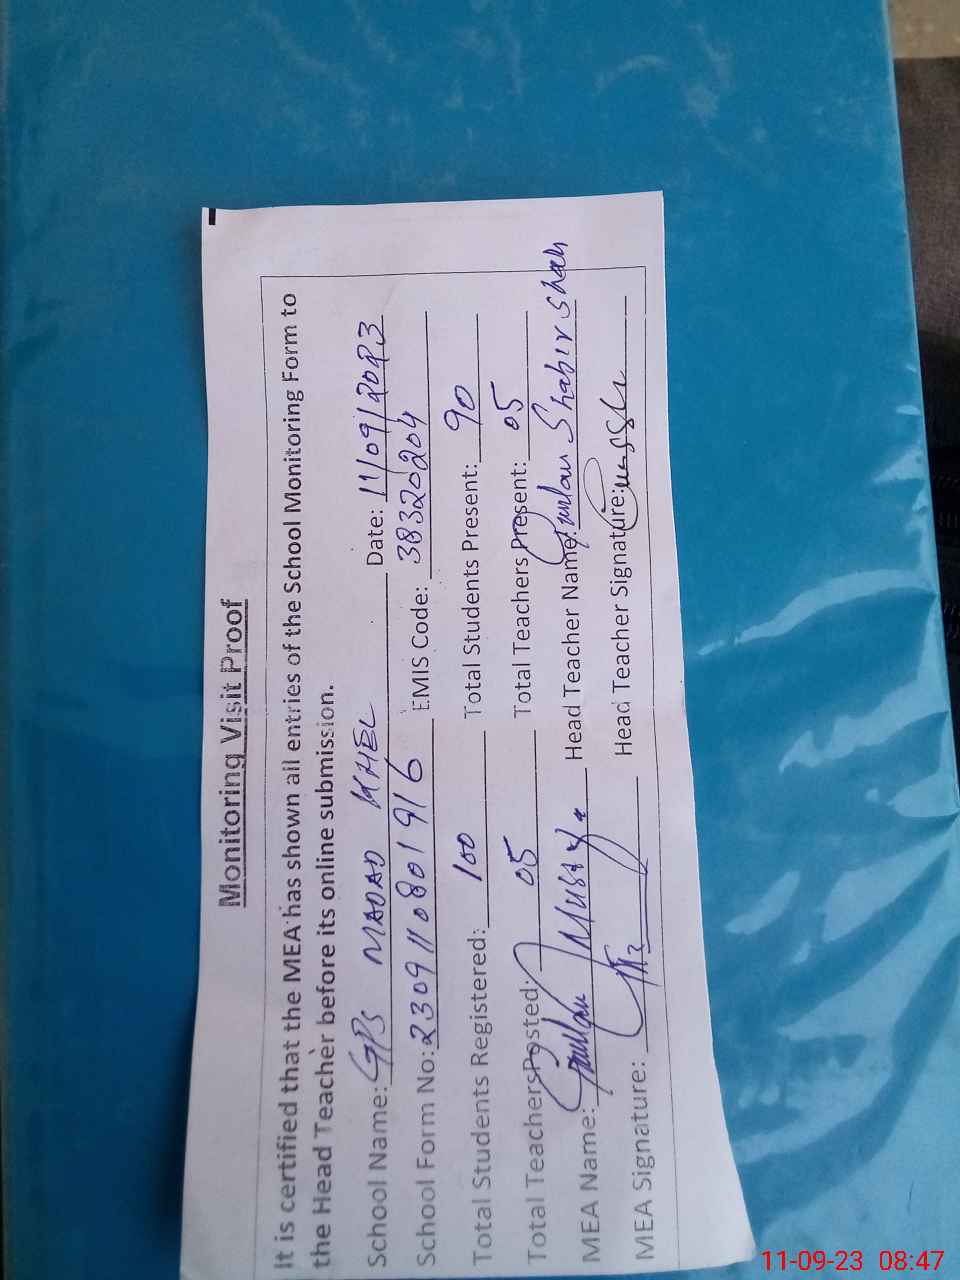 Monitoring Visit Proof
It is certified that the MEA has shown all entries of the School Monitoring Form to
the Head Teacher before its online submission.
School Name: GPS MADAD KHEL Date: 11/09/2023
School Form No: 23091108019/6 EMIS Code: 38320204
Total Students Registered: 100 Total Students Present: 90
Total Teachers Posted: 05 Total Teachers Present: 05
MEA Name: Ghulam Mustafa Head Teacher Name: Ghulam Shabir Shah
MEA Signature: Head Teacher Signature:
11-09-23 08:47